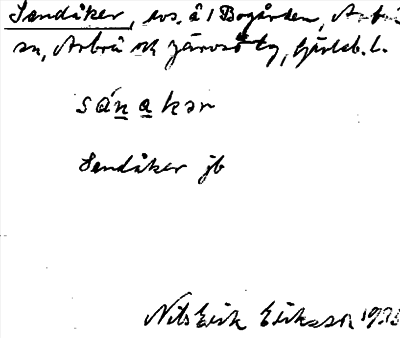 Sandåker, avs. å 1 Bogården, Arbrå
sn, Arbrå och Järvsö tg, Gävleb. l.
sánakər
Sandåker jb
Nils Erik Eriksson